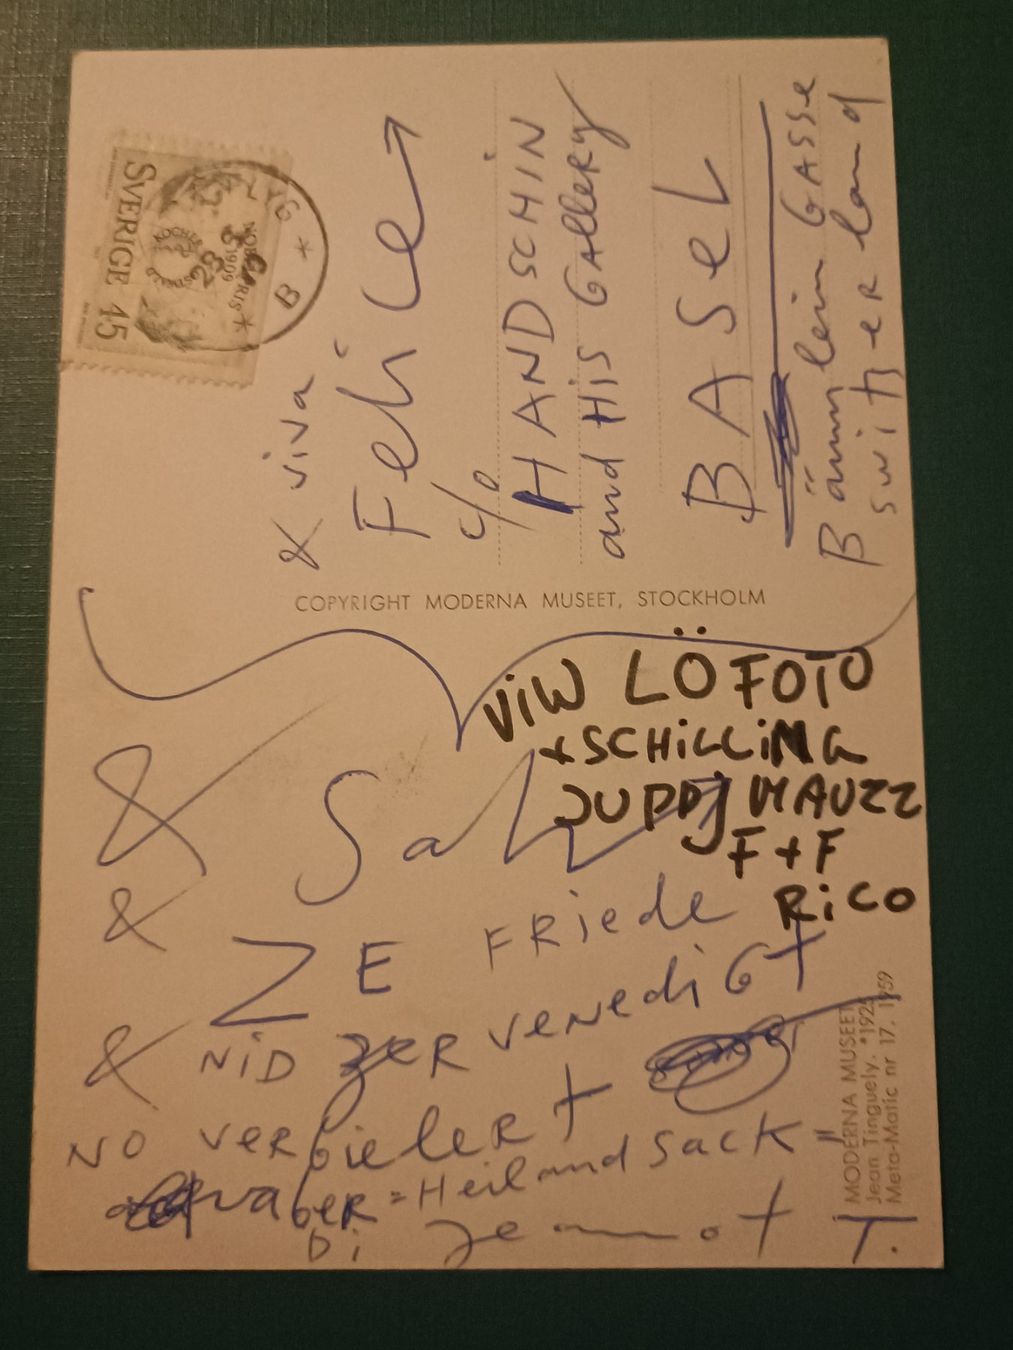 SVERIGE 45
KOCHER
1909
& viva
Felice
c/o
HANDSCHIN
and His GAllery
BASeL
Bäumlein GASSe
switzerland
COPYRIGHT MODERNA MUSEET, STOCKHOLM
ViW LÖ FOTO
+ SCHiLLiNG
F + F
RiCO
& Salü
& ZE FRiede
& NiD zer veNediGt
NO verbieLeRt
aber = Heilandsack "
Di Jeannot T.
MODERNA MUSEET
Jean Tinguely. *1925
Meta-Matic nr 17. 1959